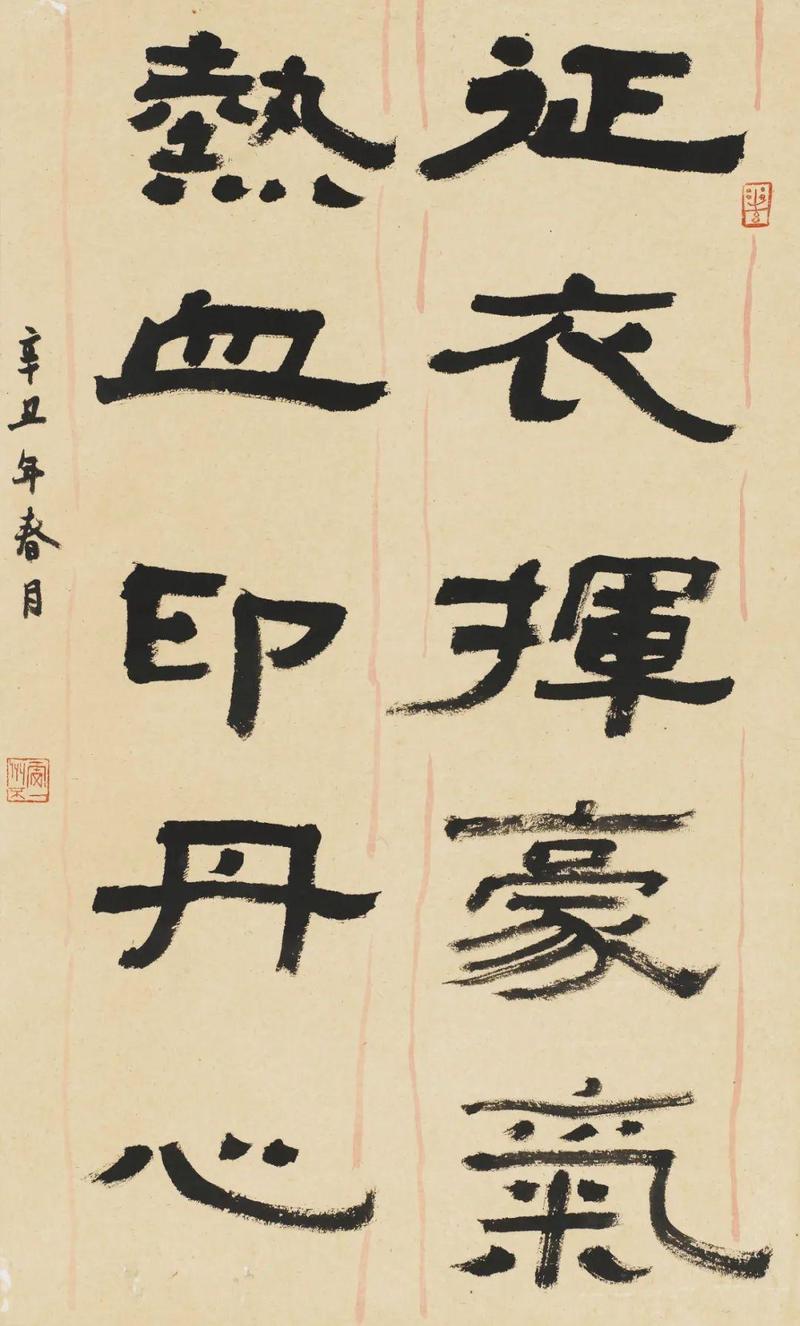 征衣揮豪氣
熱血印丹心
辛丑年春月